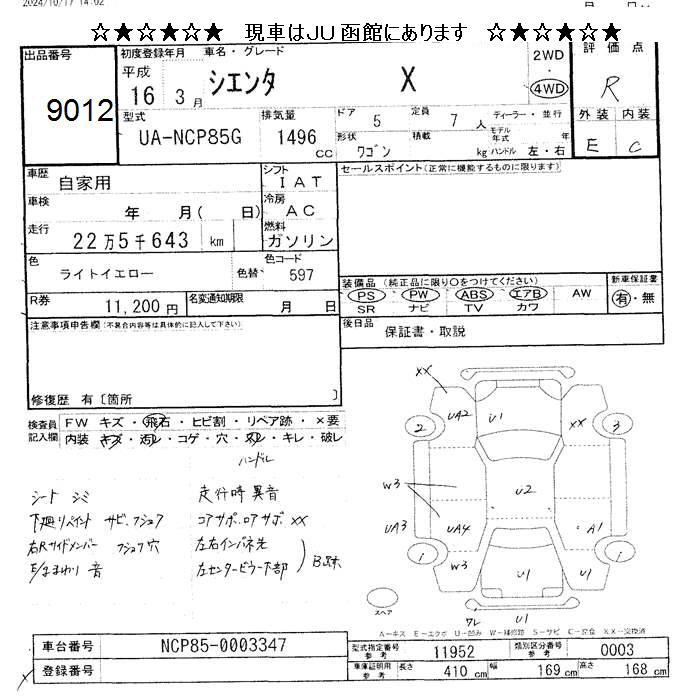 2024/10/17 14:02
☆★☆★☆★ 現車はJU函館にあります ☆★☆★☆★
出品番号
9012
初度登録年月 車名・グレード
平成
16 3月
シエンタ X
2WD
4WD
評価点
R
型式
UA-NCP85G
排気量
1496 cc
ドア 5
定員 7人
形状 ワゴン
積載 kg
ディーラー・並行
モデル年式 年
ハンドル 左・右
外装 内装
E C
車歴
自家用
シフト
IAT
セールスポイント(正常に機能するものに限ります)
車検
年 月( 日)
冷房
AC
走行
22万5千643 km
燃料
ガソリン
色
ライトイエロー
色替
色コード
597
装備品 (純正品に限り○をつけてください)
PS PW ABS エアB AW
SR ナビ TV カワ
新車保証書
有・無
R券
11,200円
名変通知期限
月 日
後日品
保証書・取説
注意事項申告欄(不具合内容等は具体的に記入して下さい)
修復歴 有〔箇所 〕
検査員記入欄
FW キズ・飛石・ヒビ割・リペア跡・×要
内装 キズ・汚れ・コゲ・穴・スレ・キレ・破レ
ハンドル
シート シミ
走行時異音
下廻リペイント サビ、フショク
コアサポ、ロアサポ XX
右Rサイドメンバー フショク穴
左右インパネ先
音
左センターピラー下部
B跡
XX
UA2
U1
XX
2
3
W3
U2
UA3
UA4
A1
1
1
W3
U1
U1
スペア
ワレ
U1
A－キズ E－エクボ U－凹み W－補修跡 S－サビ C－腐食 XX－交換済
車台番号
NCP85-0003347
登録番号
型式指定番号
参考
11952
類別区分番号
参考
0003
車庫証明用
参考
長さ 410 cm
幅 169 cm
高さ 168 cm